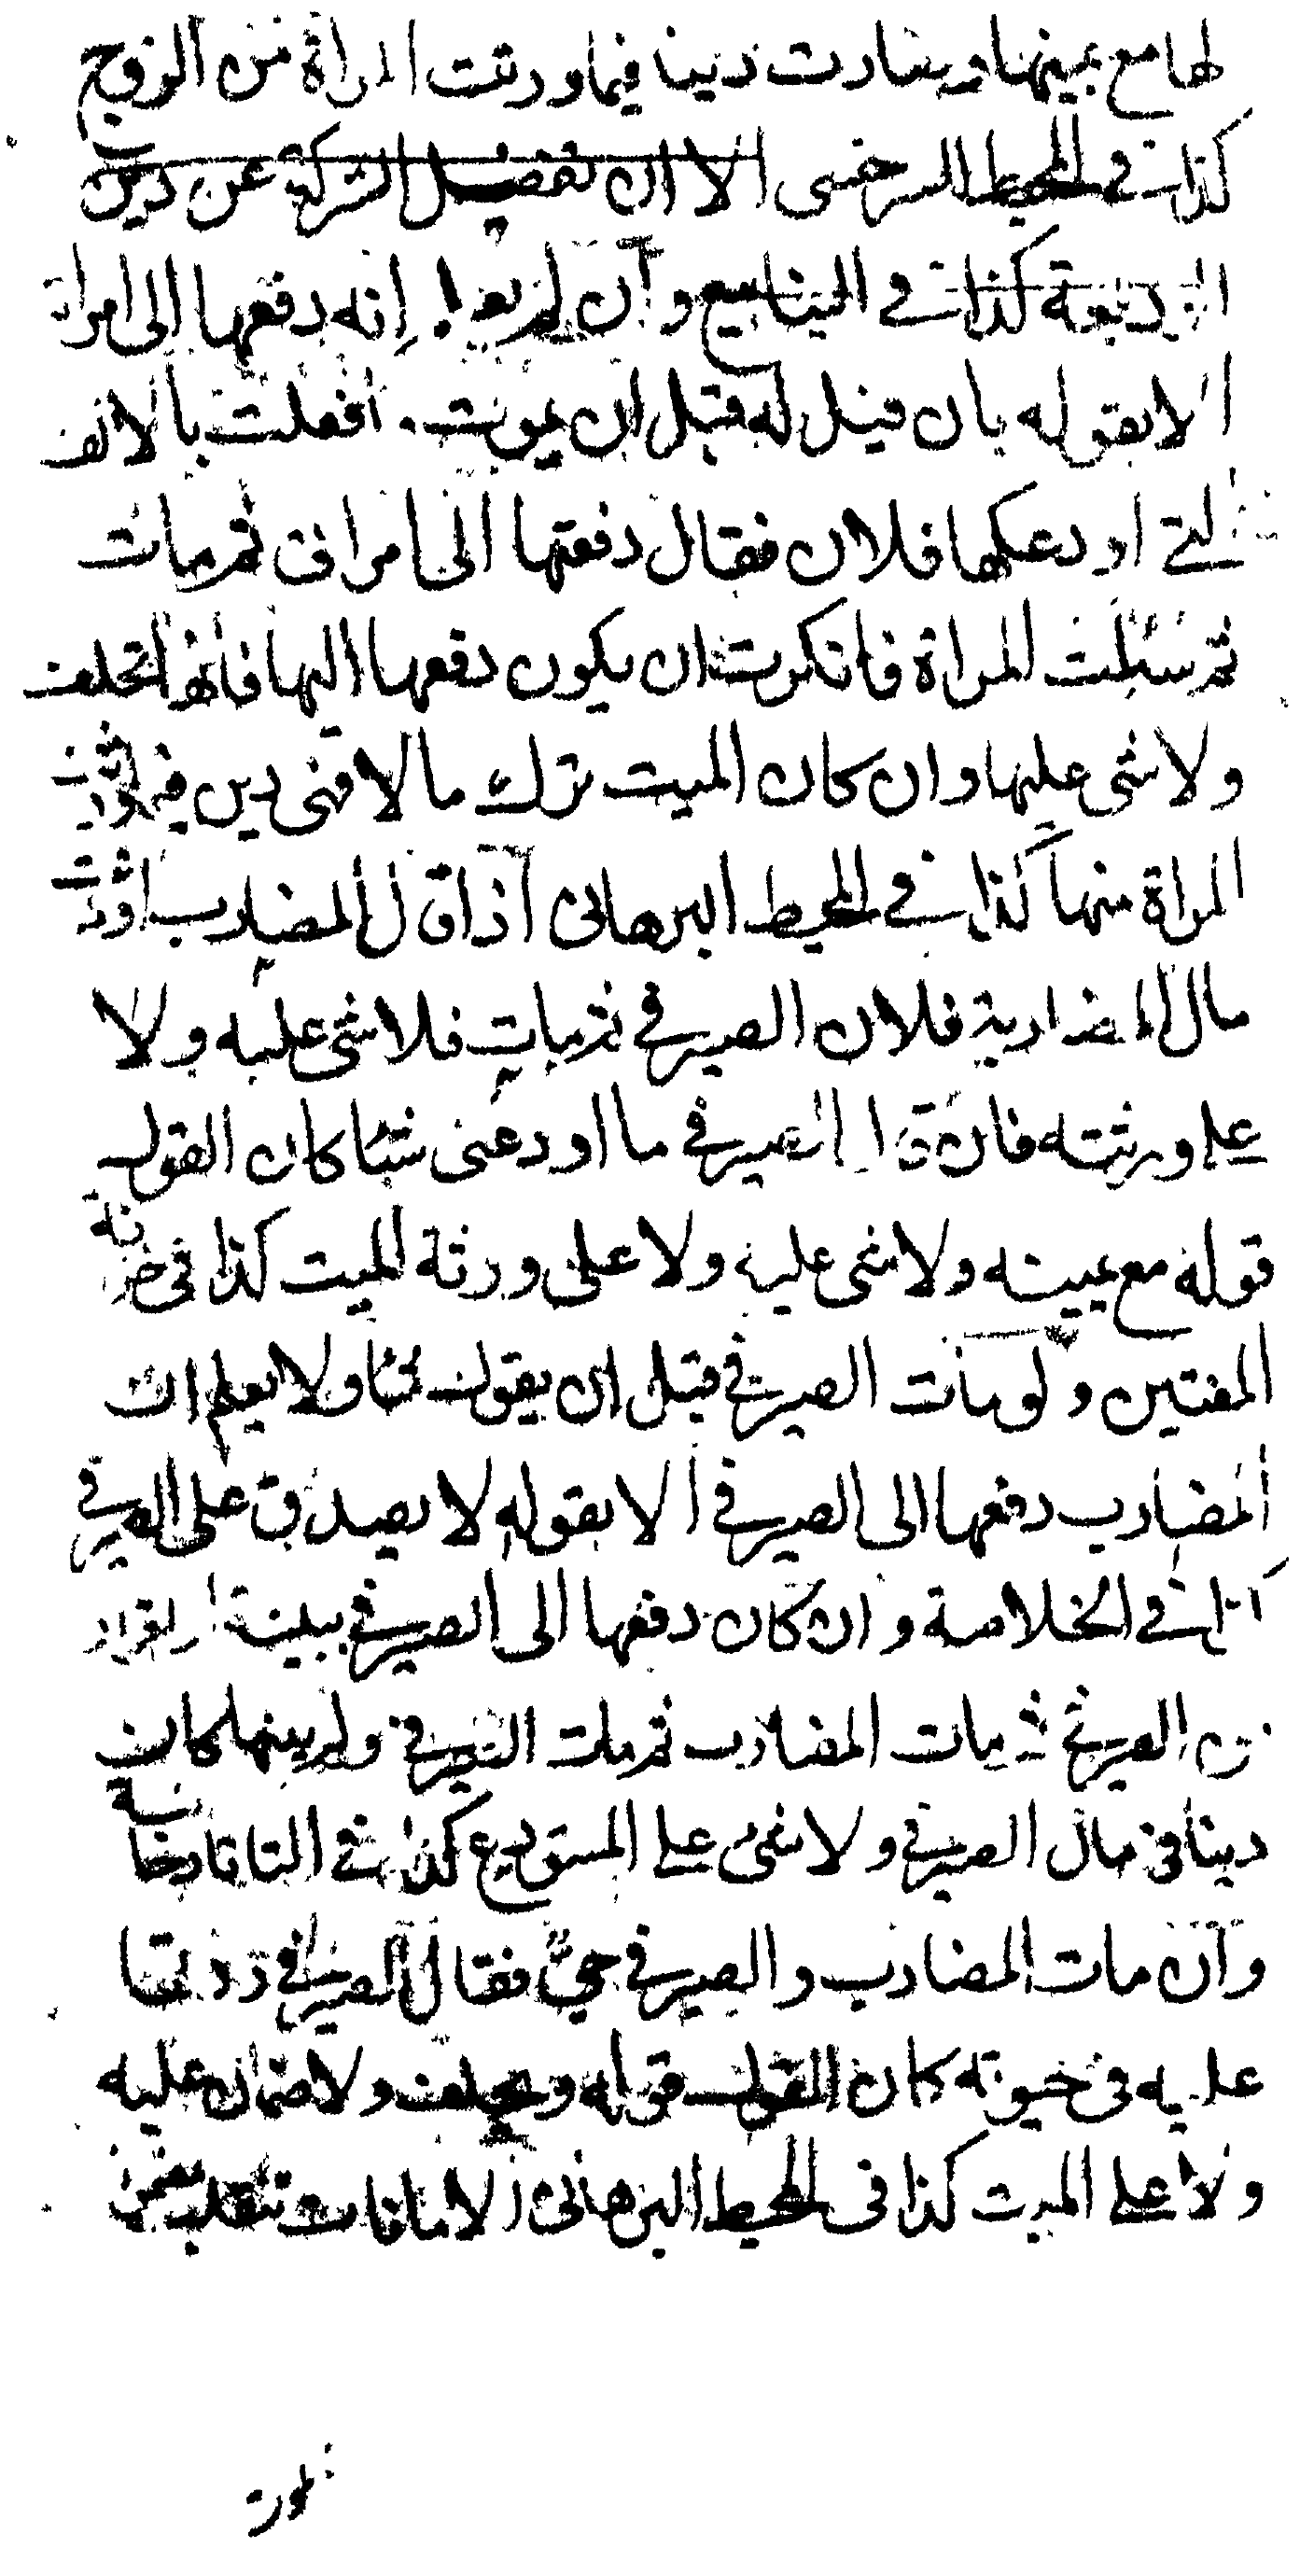 لها مع يمينها وصارت دينا فيما ورثت المراة من الزوج
كذا في المحيط السرخسى الا ان تفضل التركة عن دين
الوديعة كذا في الينابيع وان لم يعلم انه دفعها الى امراته
الا بقوله بان قيل له قبل ان يموت ما فعلت بالالف
التي اودعكها فلان فقال دفعتها الى امراتى ثم مات
ثم سئلت المراة فانكرت ان يكون دفعها اليها فانها تحلف
ولا شى عليها وان كان الميت ترك مالا فهى دين فيما ورثت
المراة منها كذا في المحيط البرهانى اذا قال المضارب اودعت
مال المضاربة فلان الصيرفي ثم مات فلا شى عليه ولا
على ورثته فان قال الصيرفي ما اودعنى شيئا كان القول
قوله مع يمينه ولا شى عليه ولا على ورثة الميت كذا في خزانة
المفتين ولو مات الصيرفي قبل ان يقول شيئا ولا يعلم ان
المضارب دفعها الى الصيرفي الا بقوله لا يصدق على الصيرفي
كذا في الخلاصة وان كان دفعها الى الصيرفي ببينة او اقرار
من الصيرفي ثم مات المضارب ثم مات الصيرفي ولم يبينها كان
دينا في مال الصيرفي ولا شى على المستودع كذا في التاتارخانية
وان مات المضارب والصيرفي حي فقال الصيرفي رددتها
عليه في حيوته كان القول قوله ويحلف ولا ضمان عليه
ولا على الميت كذا في المحيط البرهانى الامانات تنقلب مضمونة